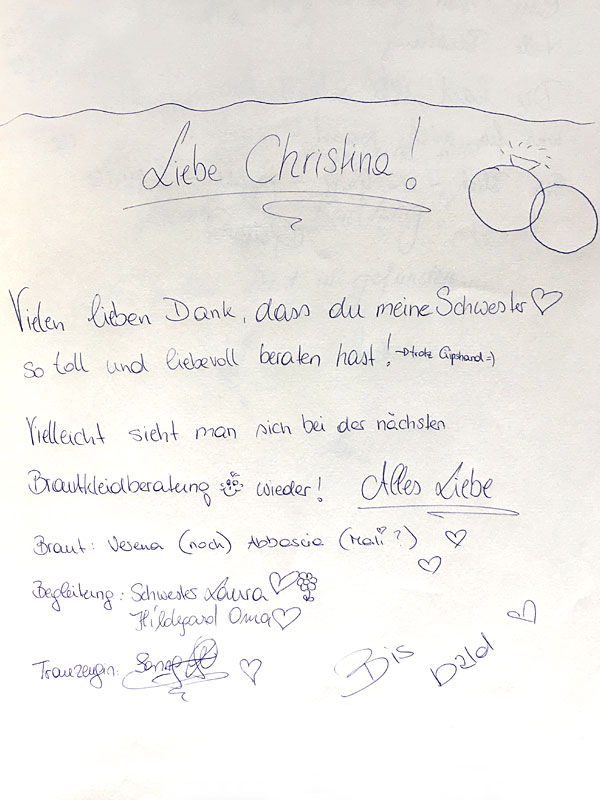 Liebe Christina!
Vielen lieben Dank, dass du meine Schwester
so toll und liebevoll beraten hast! → trotz Gipshand =)
Vielleicht sieht man sich bei der nächsten
Brautkleidberatung wieder! Alles Liebe
Braut: Verena (noch) (Mali?)
Begleitung: Schwester Laura
Hildegard Oma
Trauzeugin:
Bis bald